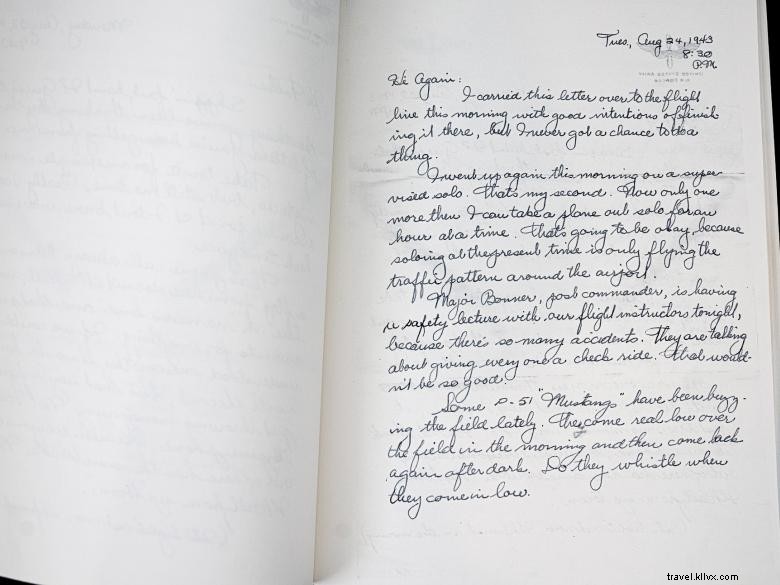 Tues., Aug 24, 1943
8:30
P.M.
Hi Again:
I carried this letter over to the flight
line this morning with good intentions of finish
ing it there, but I never got a chance to do a
thing.
I went up again this morning on a super-
vised solo. Thats my second. Now only one
more then I can take a plane out solo for an
hour at a time. Thats going to be okay, because
soloing at the present time is only flying the
traffic pattern around the airport.
Major Bonner, post commander, is having
a safety lecture with our flight instructors tonight,
because there's so many accidents. They are talking
about giving every one a check ride. That would-
n't be so good.
Some P-51 "Mustangs" have been buzz-
ing the field lately. They come real low over
the field in the morning and then come back
again after dark. Do they whistle when
they come in low.
travel.kllvx.com